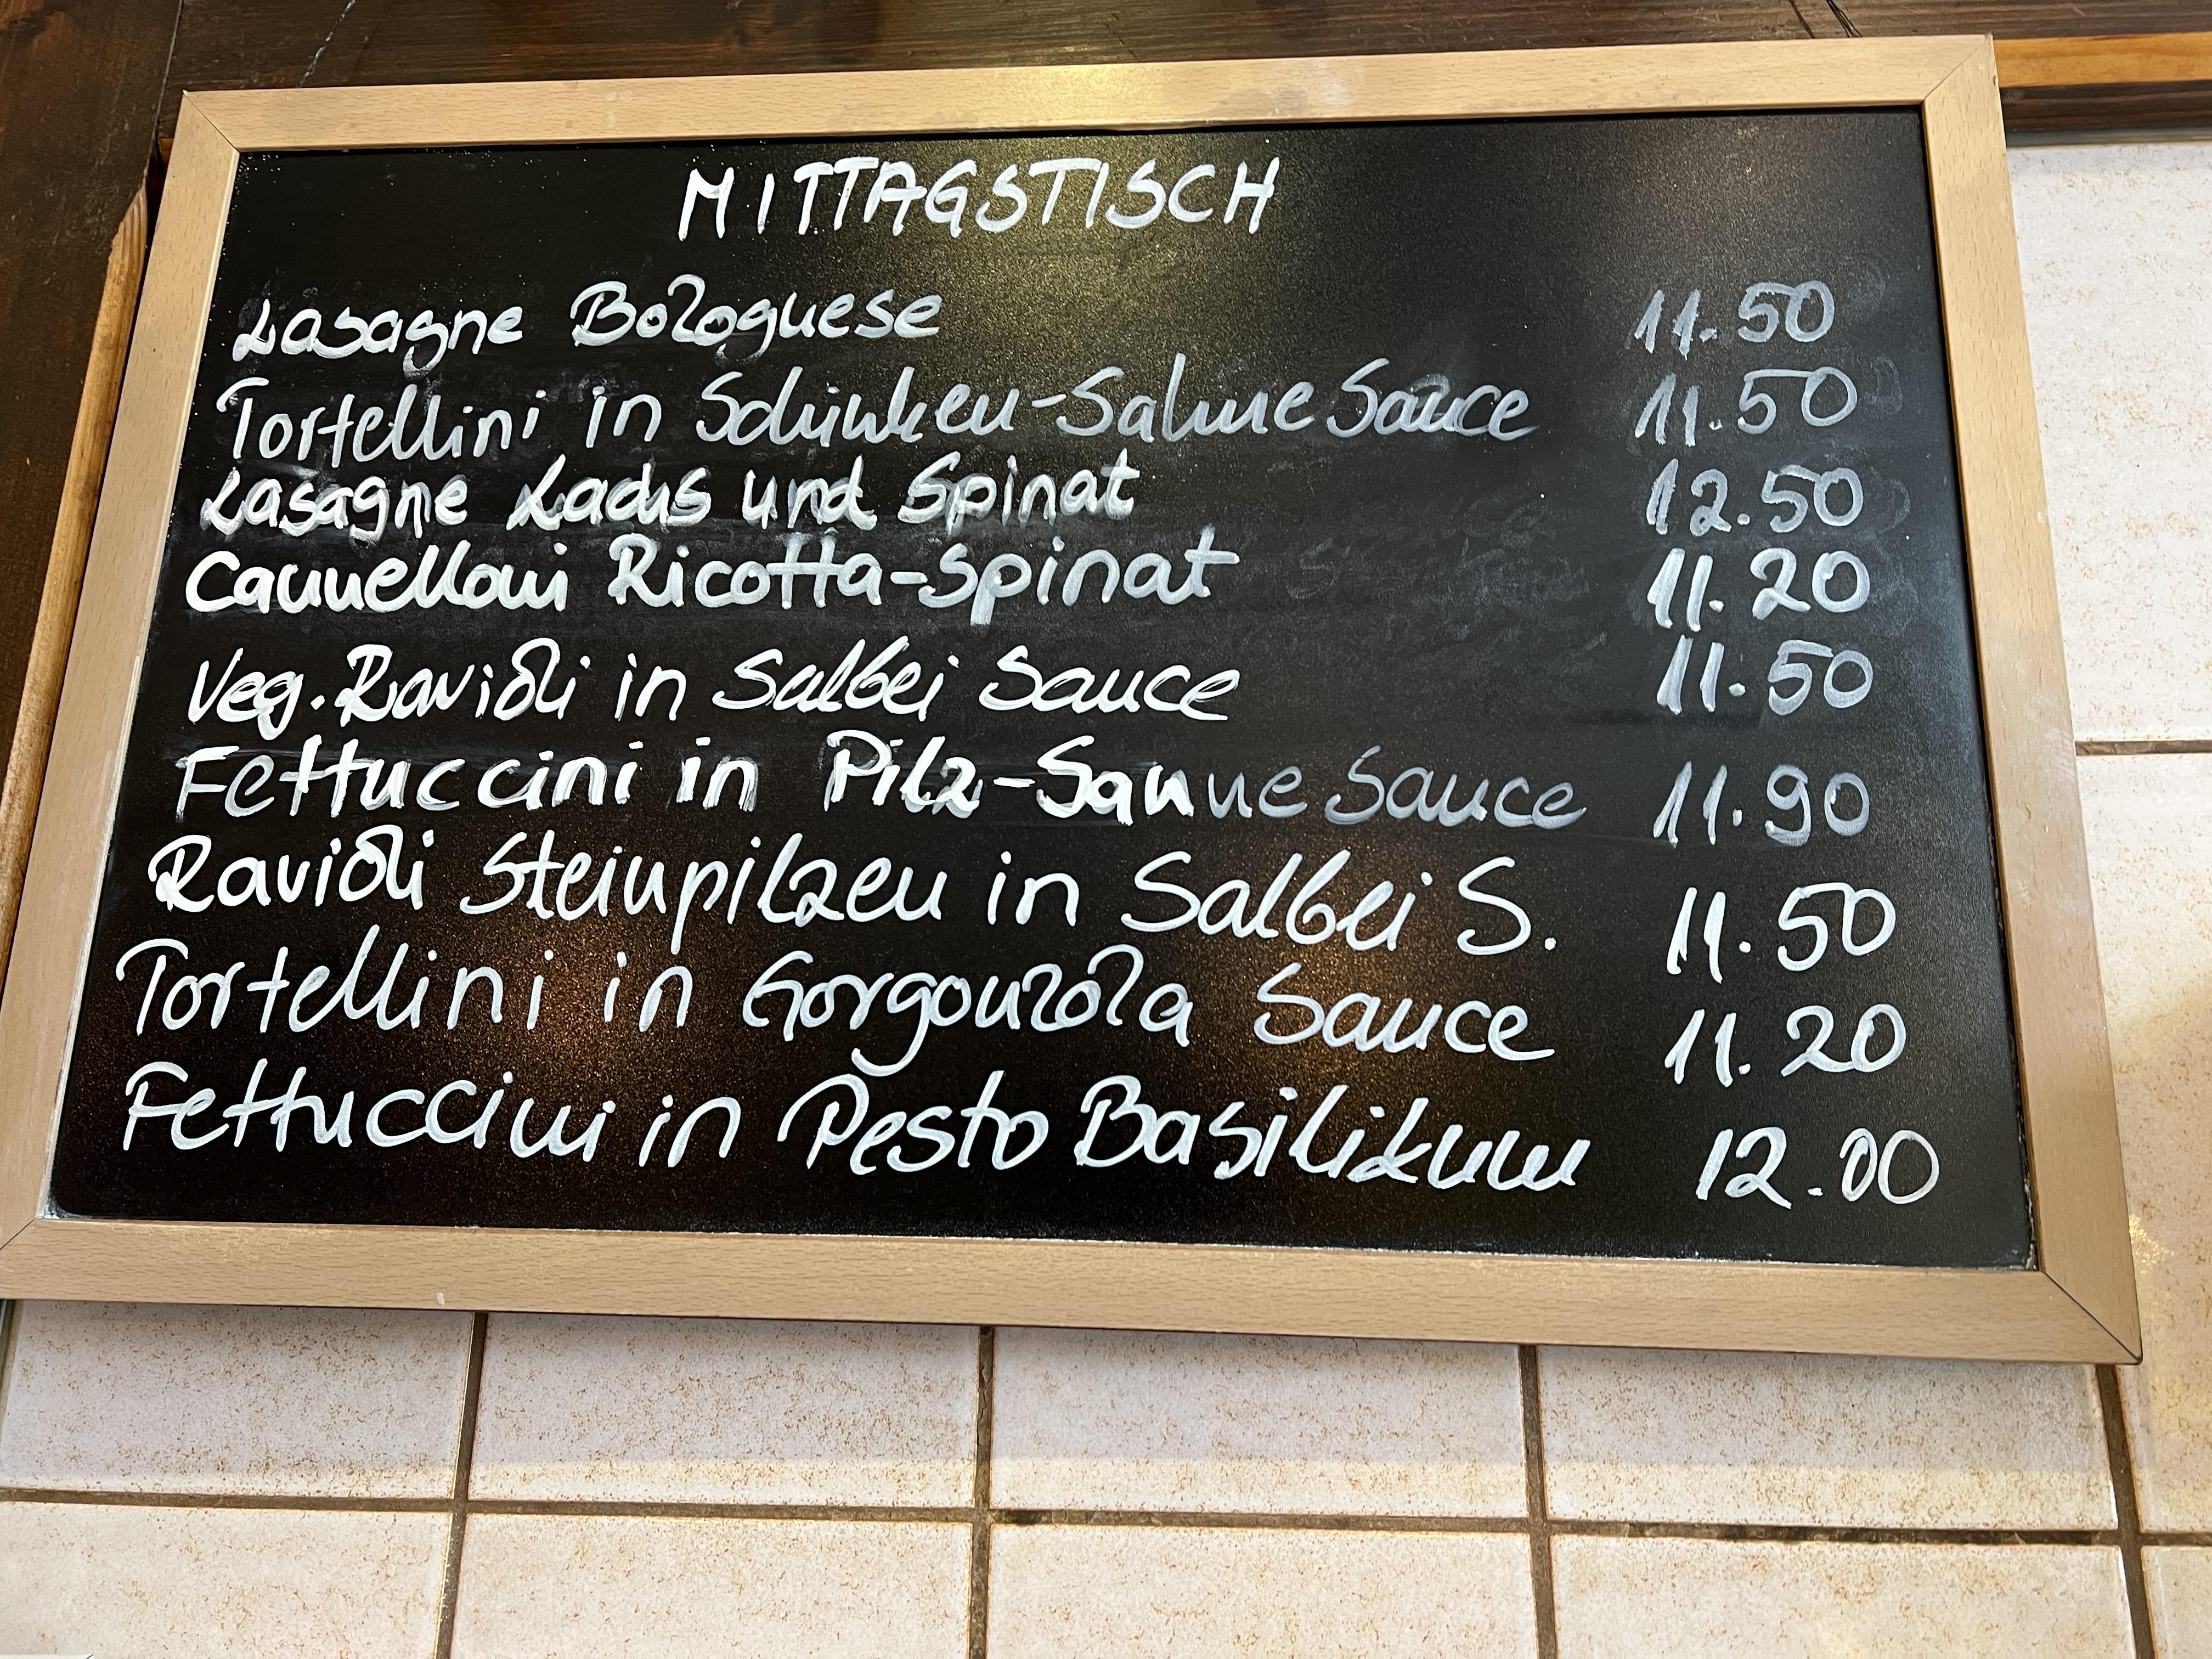 MITTAGSTISCH
Lasagne Bolognese 11.50
Tortellini in Schinken-Sahne Sauce 11.50
Lasagne Lachs und Spinat 12.50
Cannelloni Ricotta-Spinat 11.20
Veg. Ravioli in Salbei Sauce 11.50
Fettuccini in Pilz-Sahne Sauce 11.90
Ravioli Steinpilzen in Salbei S. 11.50
Tortellini in Gorgonzola Sauce 11.20
Fettuccini in Pesto Basilikum 12.00